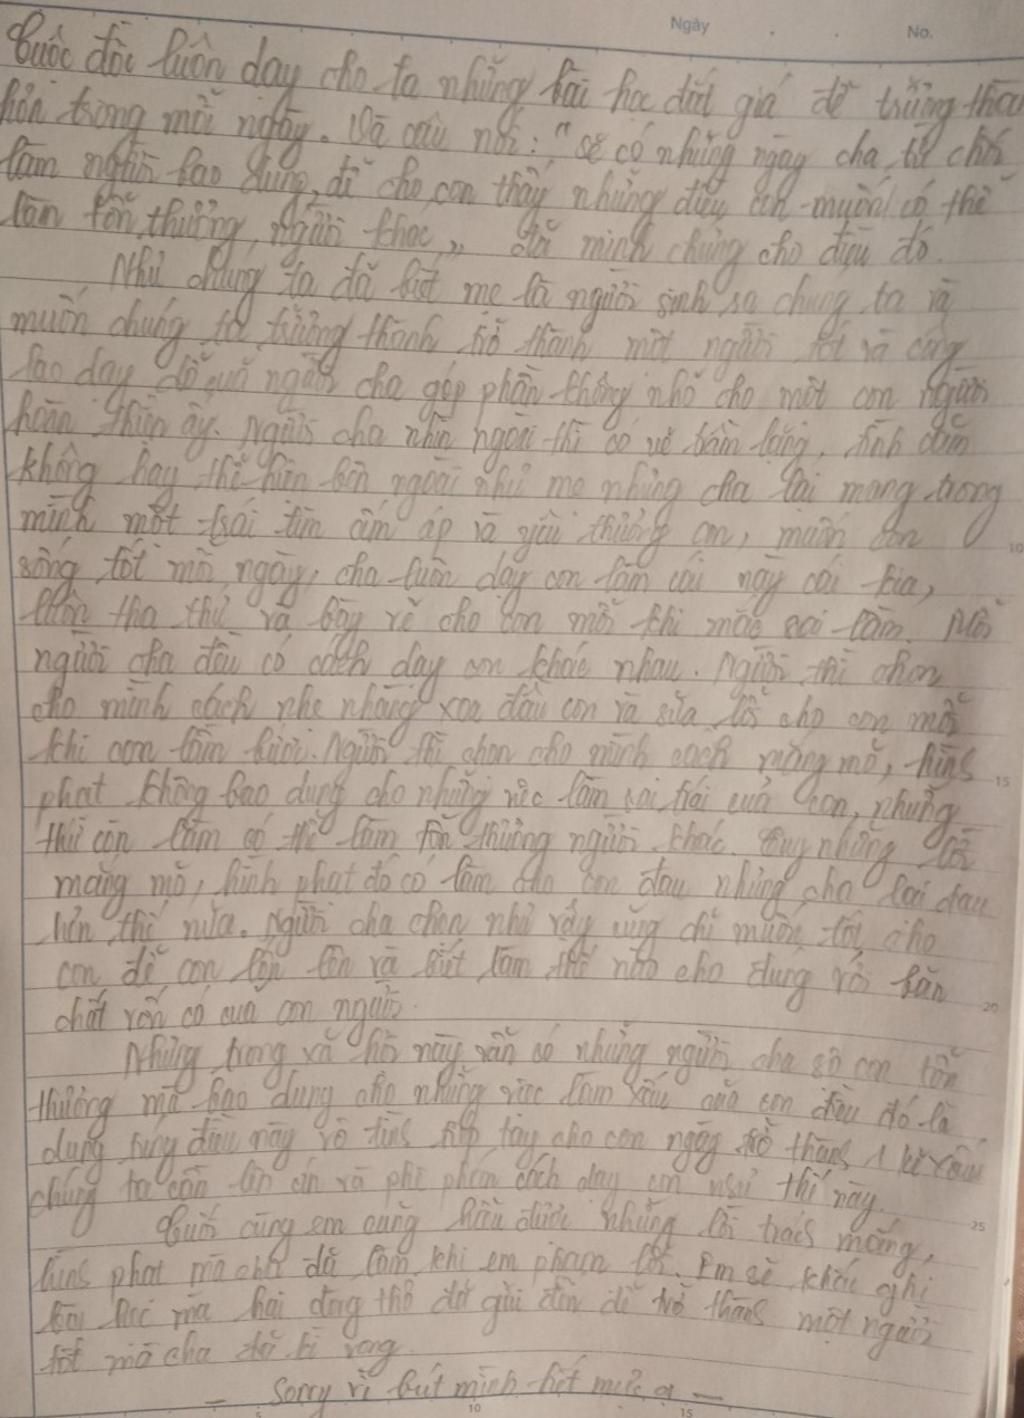 Ngày No.
Cuộc đời luôn dạy cho ta những bài học đắt giá để trưởng thành
hơn trong mỗi ngày. Và câu nói: "sẽ có những ngày cha từ chối
làm người bao dung, để cho con thấy những điều con muốn có thể
làm tổn thương người khác" đã minh chứng cho điều đó.
Như chúng ta đã biết mẹ là người sinh ra chúng ta và
muốn chúng ta trưởng thành trở thành một người tốt và công
lao dạy dỗ của người cha góp phần không nhỏ cho một con người
hoàn thiện ấy. Người cha nhìn ngoài thì có vẻ trầm lặng, tình cảm
không hay thể hiện bên ngoài như mẹ nhưng cha lại mang trong
mình một trái tim ấm áp và yêu thương con, muốn con
sống tốt mỗi ngày, cha luôn dạy con làm cái này cái kia,
luôn tha thứ và bày vẽ cho con mỗi khi mắc sai lầm. Mỗi
người cha đều có cách dạy con khác nhau. Người thì chọn
cho mình cách nhẹ nhàng xoa đầu con và sửa lỗi cho con mỗi
khi con lầm lưỡi. Người thì chọn cho mình cách mắng mỏ, hình
phạt không bao dung cho những việc làm sai trái của con, những
thứ con làm có thể làm tổn thương người khác. Tuy những lời
mắng mỏ, hình phạt đó có làm cho con đau nhưng cha lại đau
hơn thế nữa. Người cha chọn như vậy cũng chỉ muốn tốt cho
con để con lớn lên và biết làm thế nào cho đúng với bản
chất vốn có của con người.
Nhưng trong xã hội này vẫn có những người cha sợ con tổn
thương mà bao dung cho những việc làm xấu của con điều đó là
đúng điều này vô tình tiếp tay cho con ngày trở thành 1 kẻ xấu
chúng ta cần lên án và phê phán cách dạy con như thế này.
Cuối cùng em cũng hiểu được những lời trách mắng,
hình phạt mà cha đã làm khi em phạm lỗi. Em sẽ khắc ghi
bài học mà hai dòng thơ đã gửi đến để trở thành một người
tốt mà cha đã kì vọng.
- Sorry vì bút mình hết mực ạ -